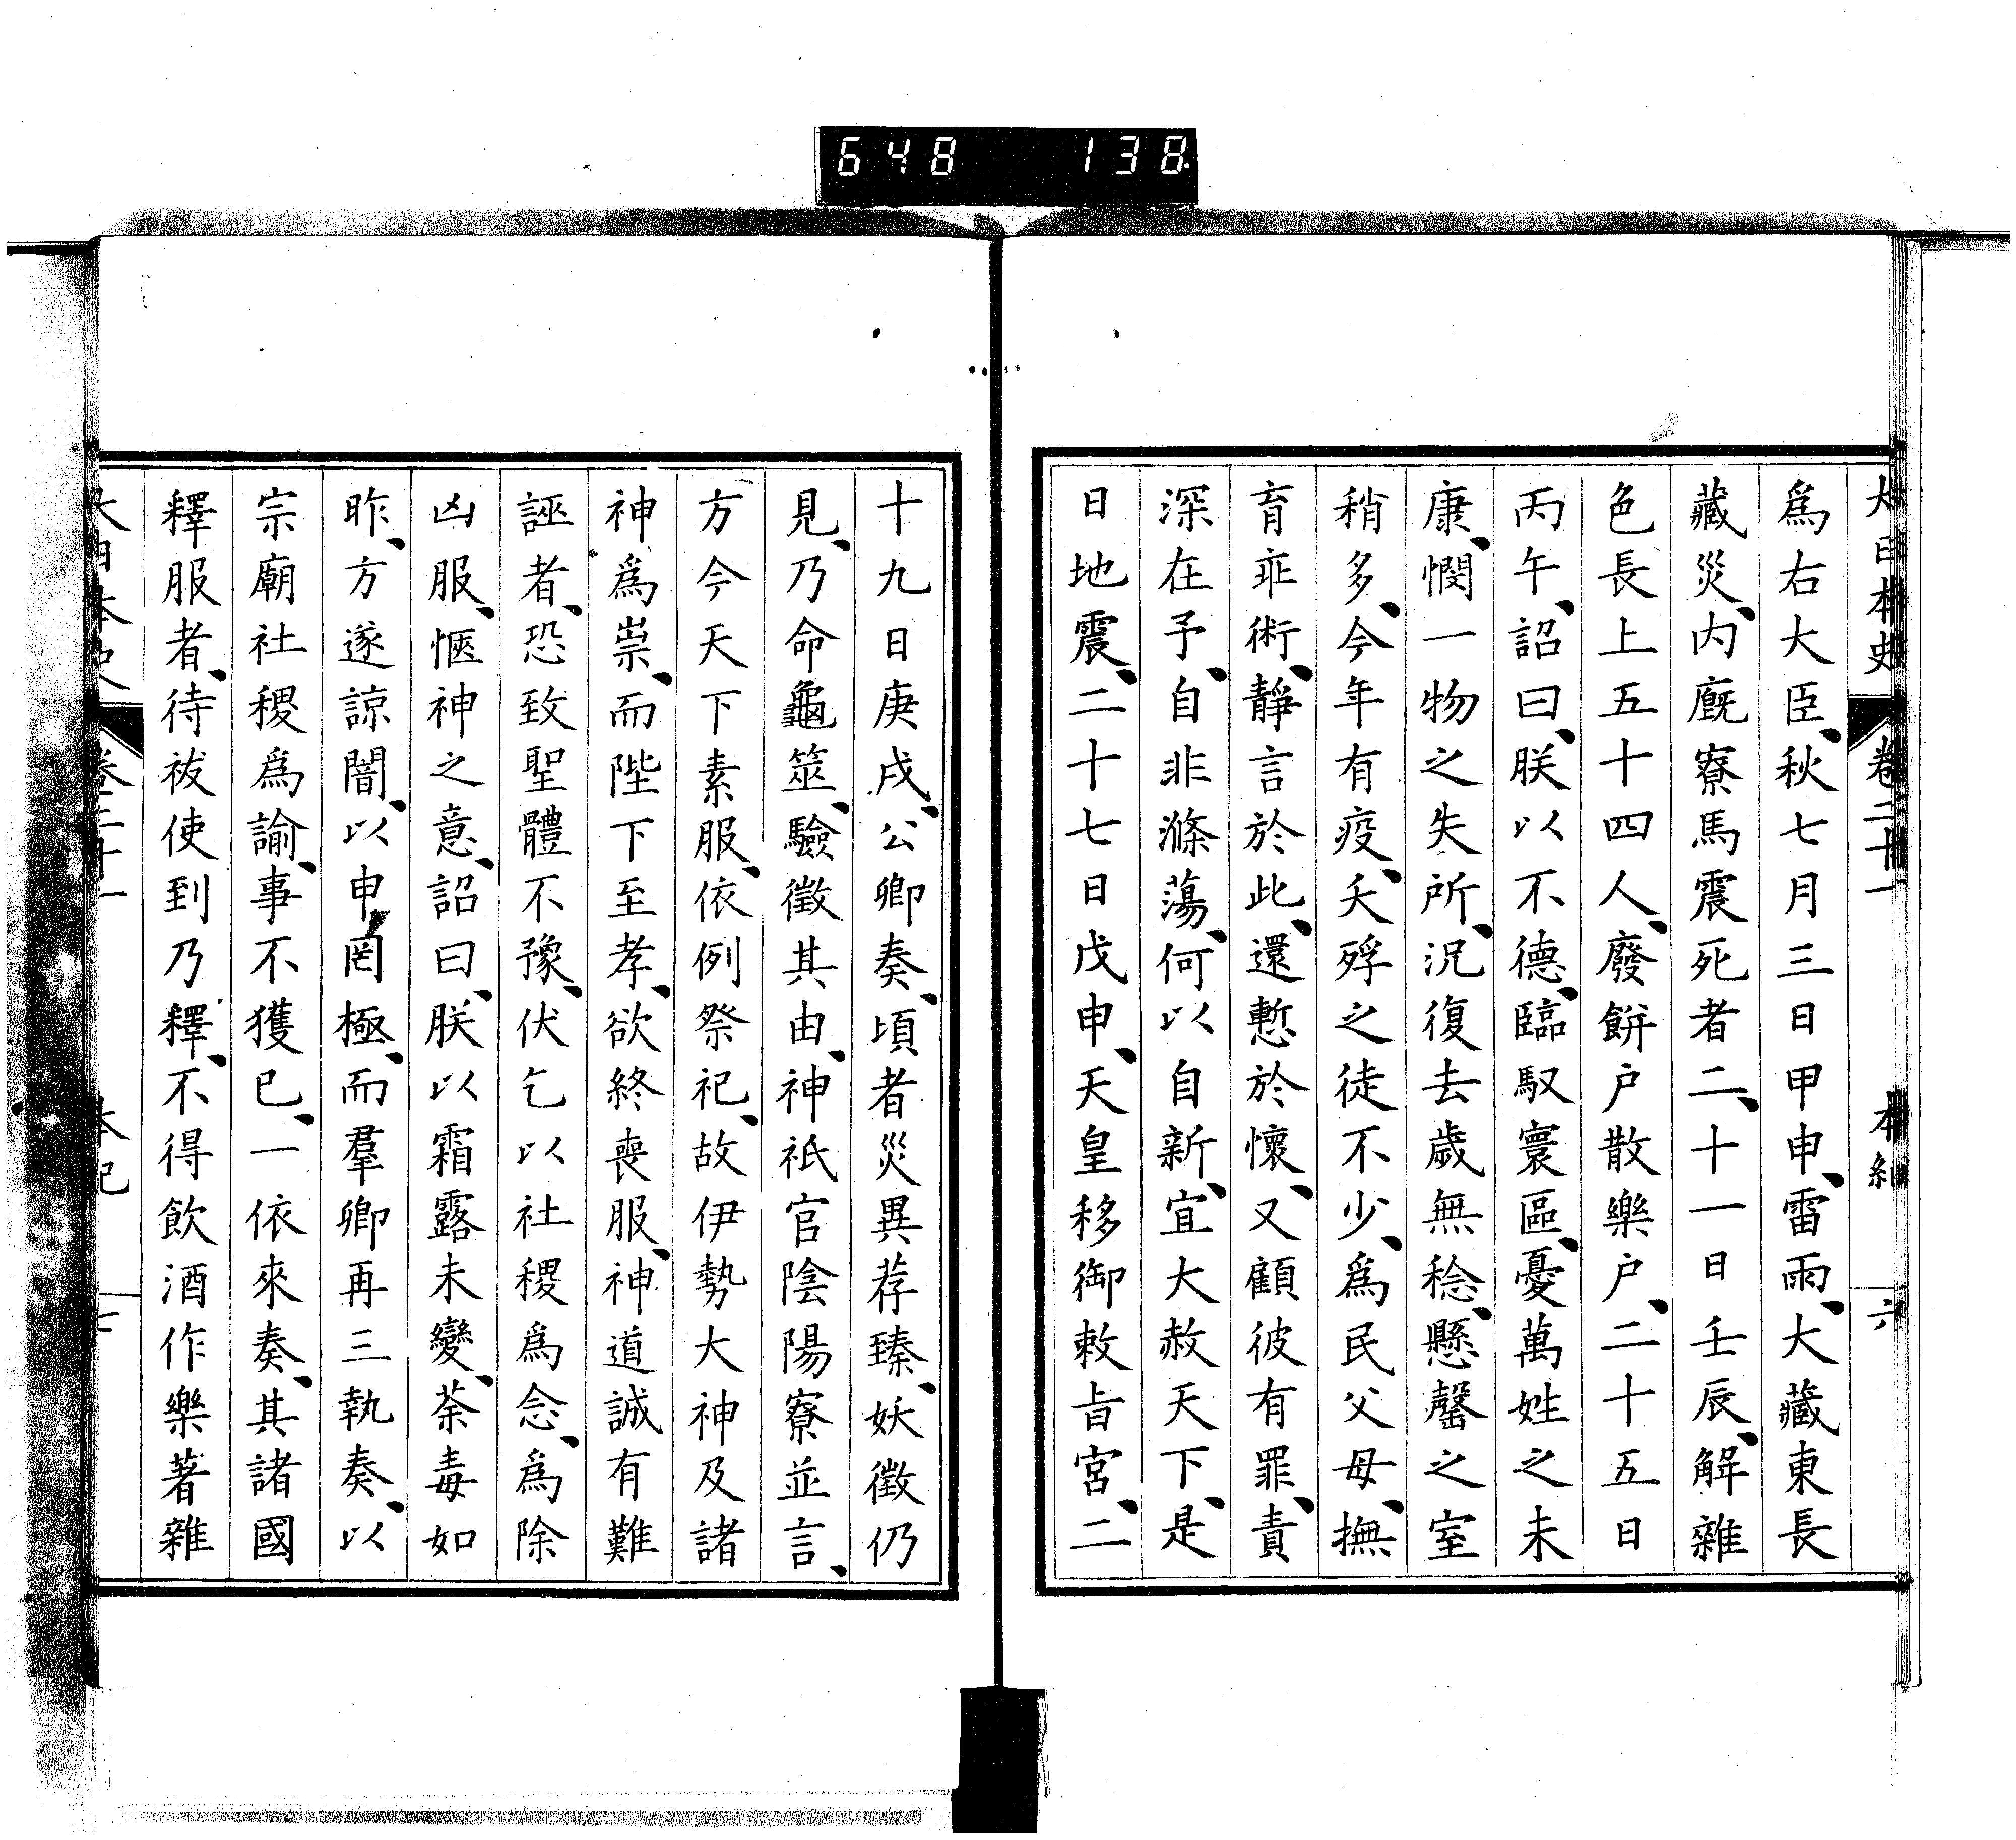 648 138
大日本史 卷二十一 本紀 六
爲右大臣、秋七月三日甲申、雷雨、大藏東長
藏災、内廐寮馬震死者二、十一日壬辰、解雜
色長上五十四人、廢餅户散樂户、二十五日
丙午、詔曰、朕以不德、臨馭寰區、憂萬姓之未
康、憫一物之失所、況復去歲無稔、懸罄之室
稍多、今年有疫、夭殍之徒不少、爲民父母、撫
育乖術、靜言於此、還慙於懷、又顧彼有罪、責
深在予、自非滌蕩、何以自新、宜大赦天下、是
日地震、二十七日戊申、天皇移御敕旨宮、二
十九日庚戌、公卿奏、頃者災異荐臻、妖徵仍
見、乃命龜筮、驗徵其由、神祇官陰陽寮並言、
方今天下素服、依例祭祀、故伊勢大神及諸
神爲祟、而陛下至孝、欲終喪服、神道誠有難
誣者、恐致聖體不豫、伏乞以社稷爲念、爲除
凶服、愜神之意、詔曰、朕以霜露未變、荼毒如
昨、方遂諒闇、以申罔極、而羣卿再三執奏、以
宗廟社稷爲諭、事不獲已、一依來奏、其諸國
釋服者、待祓使到乃釋、不得飲酒作樂著雜
大日本史 卷二十一 本紀 七